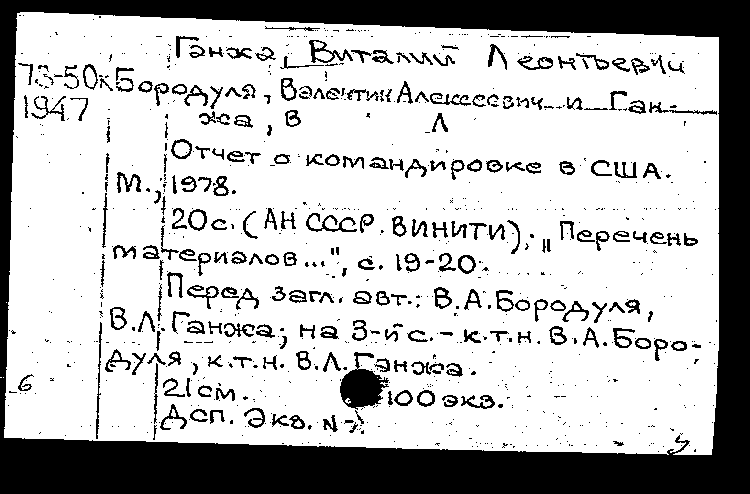 Ганжа, Виталий Леонтьевич
73-50к Бородуля, Валентин Алексеевич и Ган-
1947 жа, В Л
Отчет о командировке в США.
М., 1978.
20с. (АН СССР. ВИНИТИ). „Перечень
материалов...", с. 19-20.
Перед загл. авт.: В.А.Бородуля,
В.Л.Ганжа; на 3-й с. - к.т.н. В.А.Боро-
дуля, к.т.н. В.Л.Ганжа.
6 21см. 100 экз.
Дсп. Экз. №